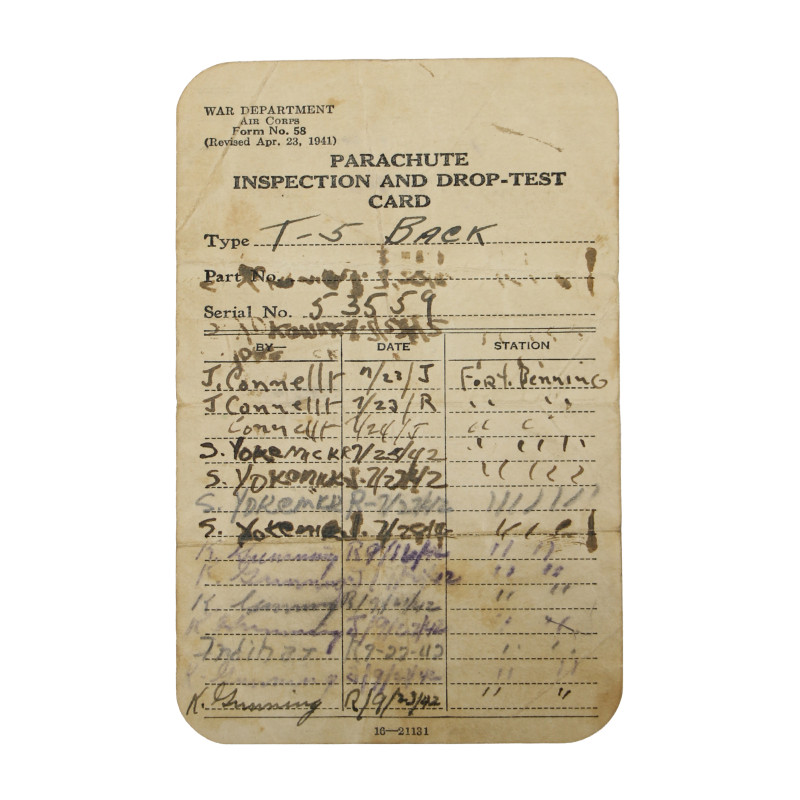 WAR DEPARTMENT
AIR CORPS
Form No. 58
(Revised Apr. 23, 1941)
PARACHUTE
INSPECTION AND DROP-TEST
CARD
Type T-5 BACK
Part No.
Serial No. 53559
BY— DATE STATION
J. Connellt 7/22/J Fort. Benning
J Connellt 7/23/R " "
Connellt 7/24/J " "
S. YOKEMICK R 7/25/42 " " " "
S. YOKEMICK J. 7/27/42 " " " "
S. YOKEMICK R-7/27/42 " " " " "
S. J. 7/28/ " " "
K Gunning R 9/ /42 " "
K Gunning " "
K. Gunning R/9/ /42 " "
K Gunning J/9/22/42 " "
R 9-22-42 " "
Gunning " "
K. Gunning R/9/23/42 " "
16—21131